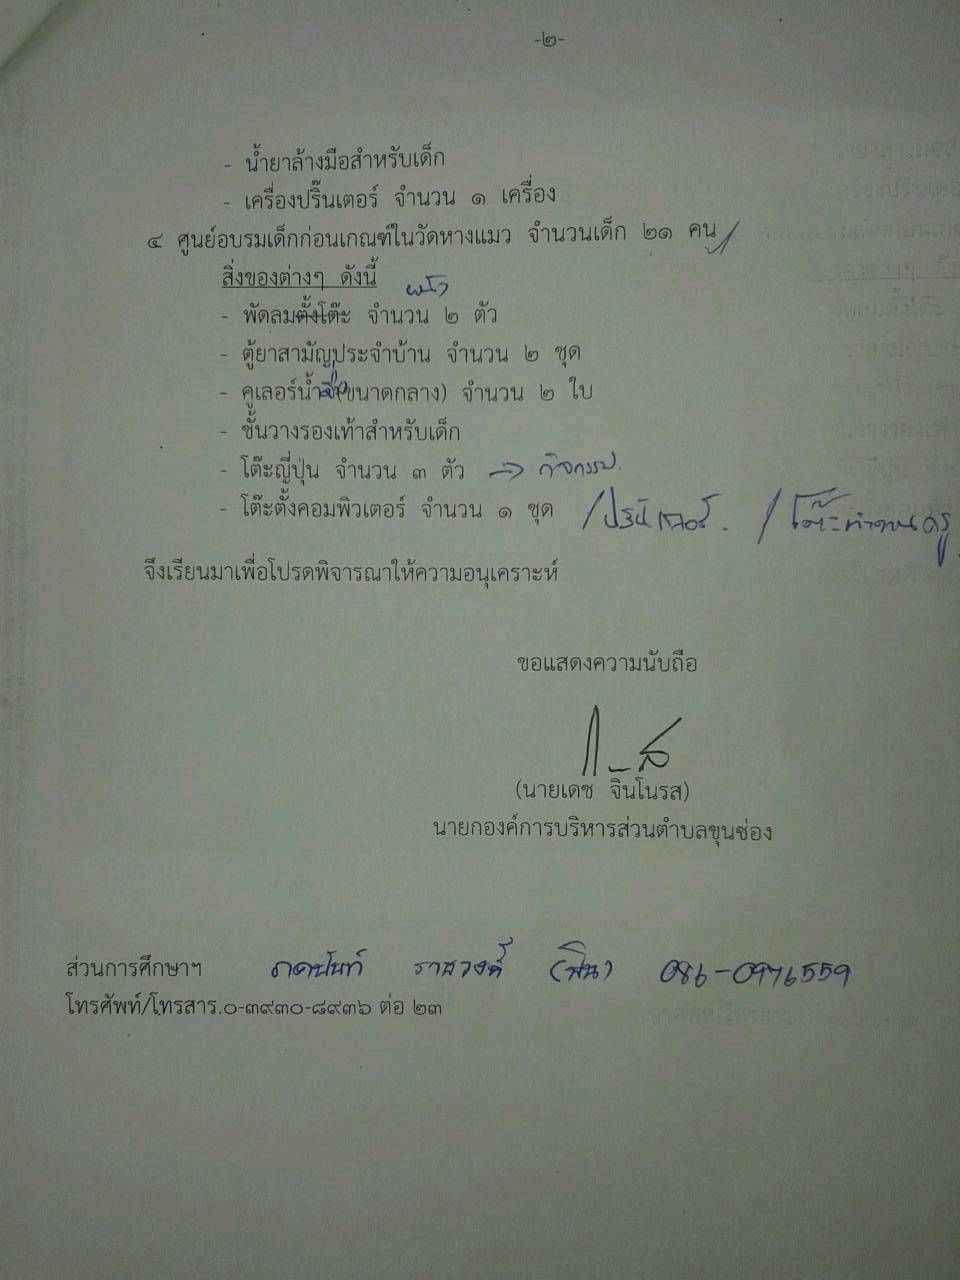 -๒-
- น้ำยาล้างมือสำหรับเด็ก
- เครื่องปริ๊นเตอร์ จำนวน ๑ เครื่อง
๔ ศูนย์อบรมเด็กก่อนเกณฑ์ในวัดหางแมว จำนวนเด็ก ๒๑ คน /
สิ่งของต่างๆ ดังนี้
- พัดลมตั้งโต๊ะ จำนวน ๒ ตัว
- ตู้ยาสามัญประจำบ้าน จำนวน ๒ ชุด
- คูเลอร์น้ำ (ขนาดกลาง) จำนวน ๒ ใบ
- ชั้นวางรองเท้าสำหรับเด็ก
- โต๊ะญี่ปุ่น จำนวน ๓ ตัว => กิจกรรม
- โต๊ะตั้งคอมพิวเตอร์ จำนวน ๑ ชุด / ปริ้นเตอร์ / โต๊ะทำงานครู
จึงเรียนมาเพื่อโปรดพิจารณาให้ความอนุเคราะห์
ขอแสดงความนับถือ
(นายเดช จินโนรส)
นายกองค์การบริหารส่วนตำบลขุนซ่อง
ส่วนการศึกษาฯ 086-0976559
โทรศัพท์/โทรสาร.๐-๓๙๓๐-๘๙๓๖ ต่อ ๒๓